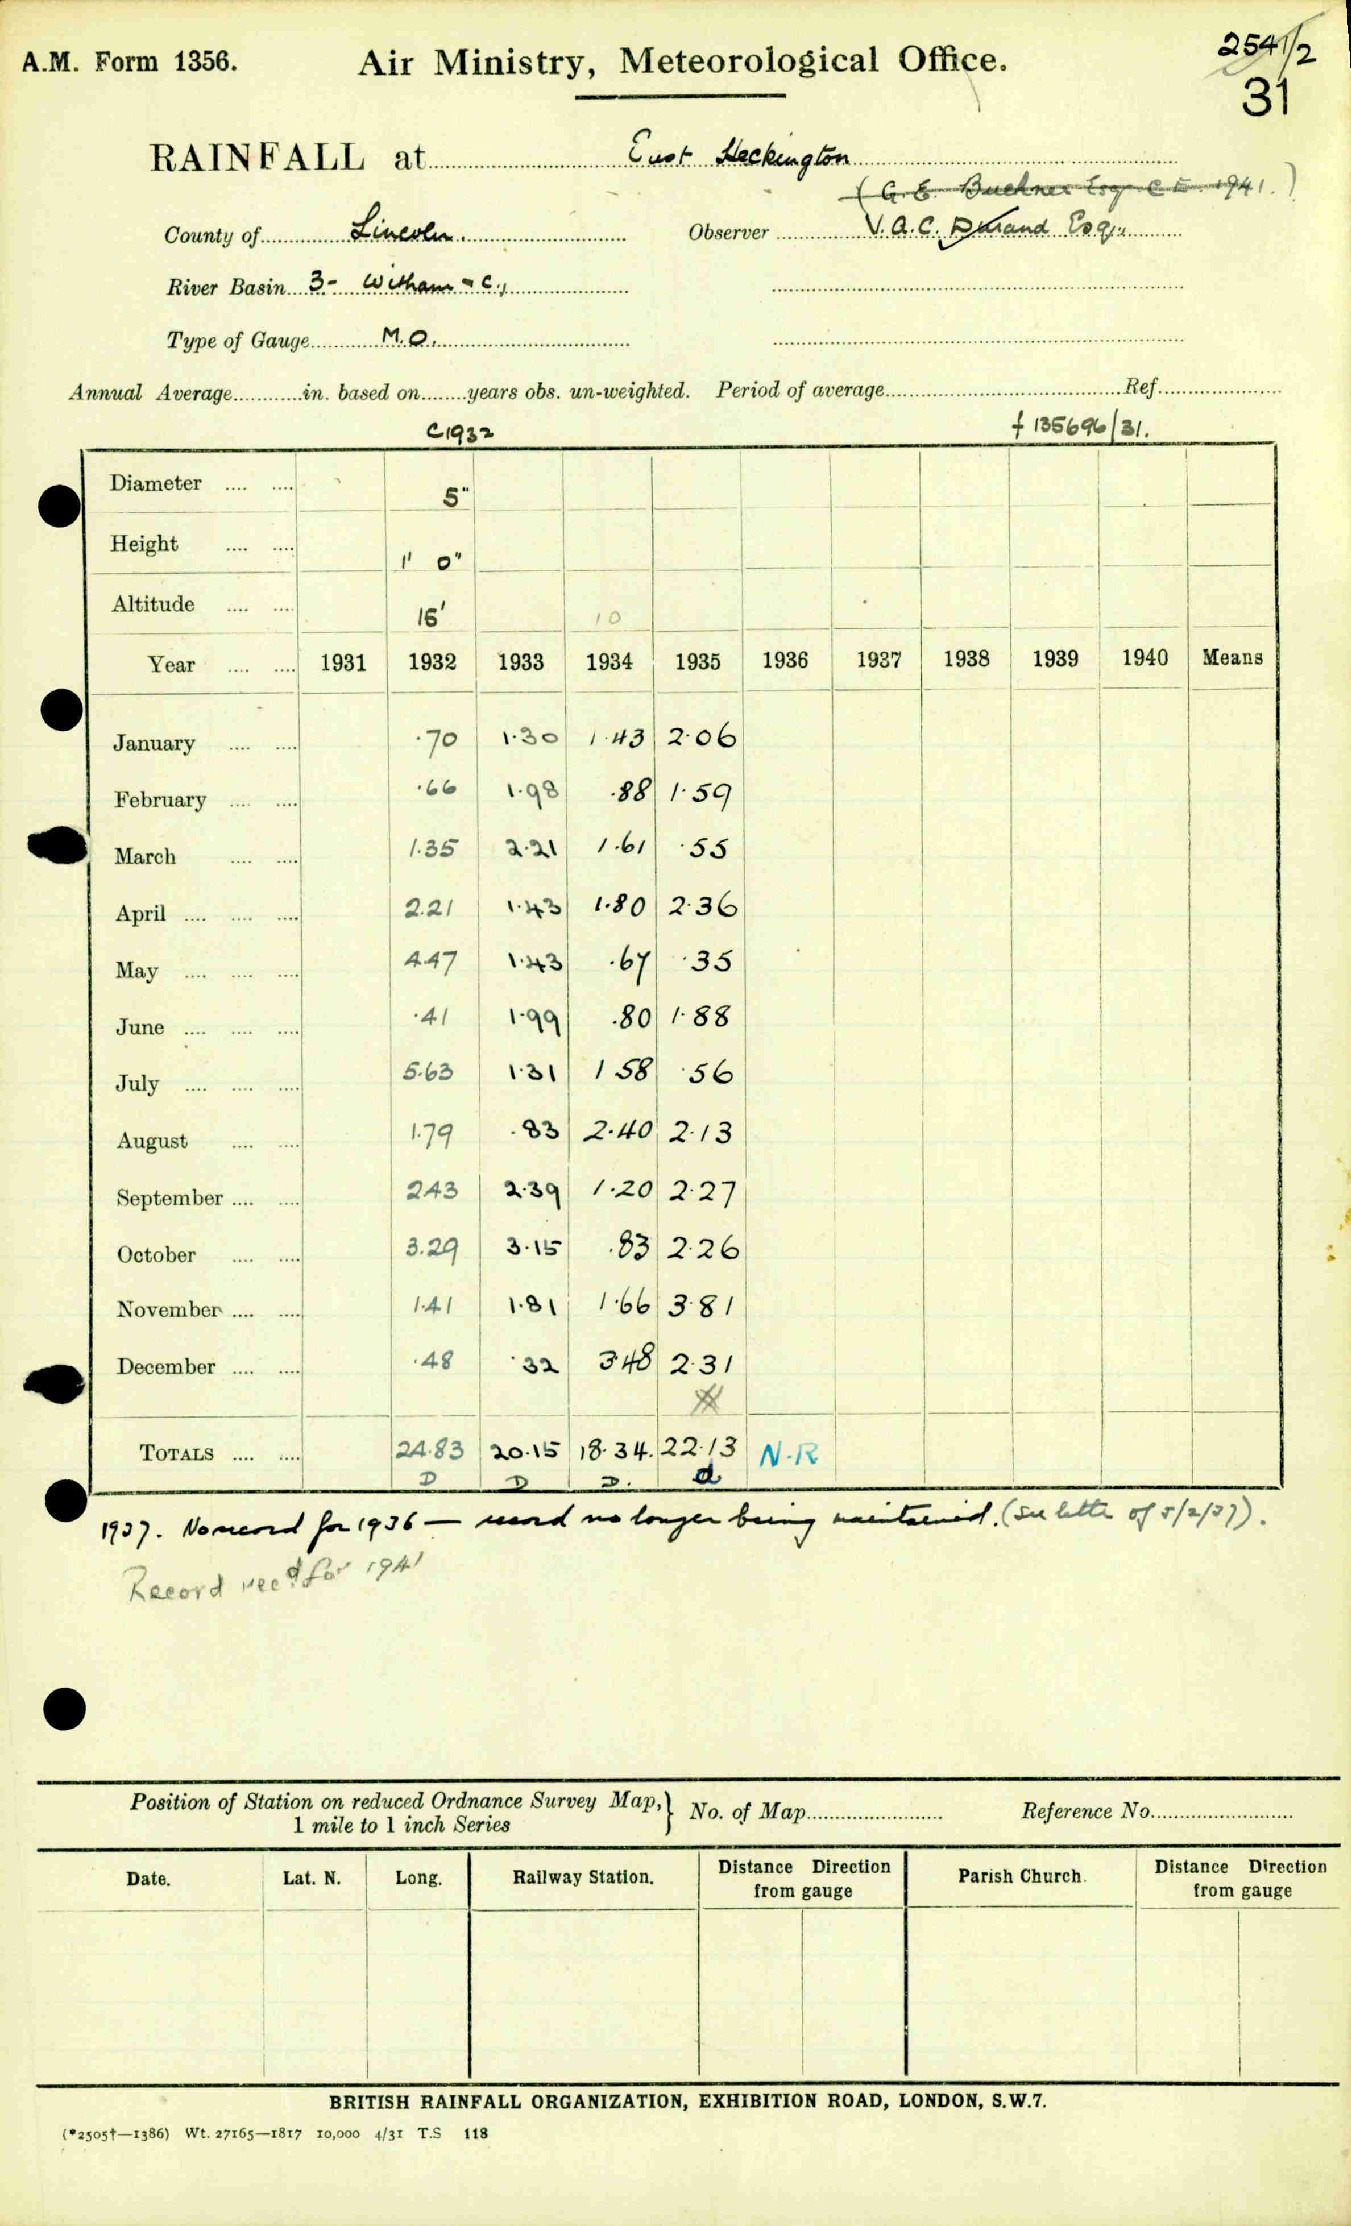 A.M. Form 1356.
Air Ministry, Meteorological Office.
2541/2
31
RAINFALL at East Heckington
(G.E. Buchner Esq C.E. 1941.)
County of Lincoln. Observer V.A.C. Durand Esq.,
River Basin 3- Witham - C.,
Type of Gauge M.O.
Annual Average in. based on years obs. un-weighted. Period of average Ref.
C1932 f 135696/31.
Diameter 5"
Height 1' 0"
Altitude 16' 10
Year 1931 1932 1933 1934 1935 1936 1937 1938 1939 1940 Means
January .70 1.30 1.43 2.06
February .66 1.98 .88 1.59
March 1.35 2.21 1.61 .55
April 2.21 1.43 1.80 2.36
May 4.47 1.43 .67 .35
June .41 1.99 .80 1.88
July 5.63 1.31 1 58 .56
August 1.79 .83 2.40 2.13
September 2.43 2.39 1.20 2.27
October 3.29 3.15 .83 2.26
November 1.41 1.81 1.66 3.81
December .48 .32 3.48 2.31
TOTALS 24.83 20.15 18.34. 22.13 N.R
D D D. d
1937. No record for 1936 — record no longer being maintained. (See letter of 5/2/37).
Record recd for 1941
Position of Station on reduced Ordnance Survey Map,} No. of Map Reference No.
1 mile to 1 inch Series
Date. Lat. N. Long. Railway Station. Distance Direction from gauge Parish Church. Distance Direction from gauge
BRITISH RAINFALL ORGANIZATION, EXHIBITION ROAD, LONDON, S.W.7.
(*2505†—1386) Wt. 27165—1817 10,000 4/31 T.S 118